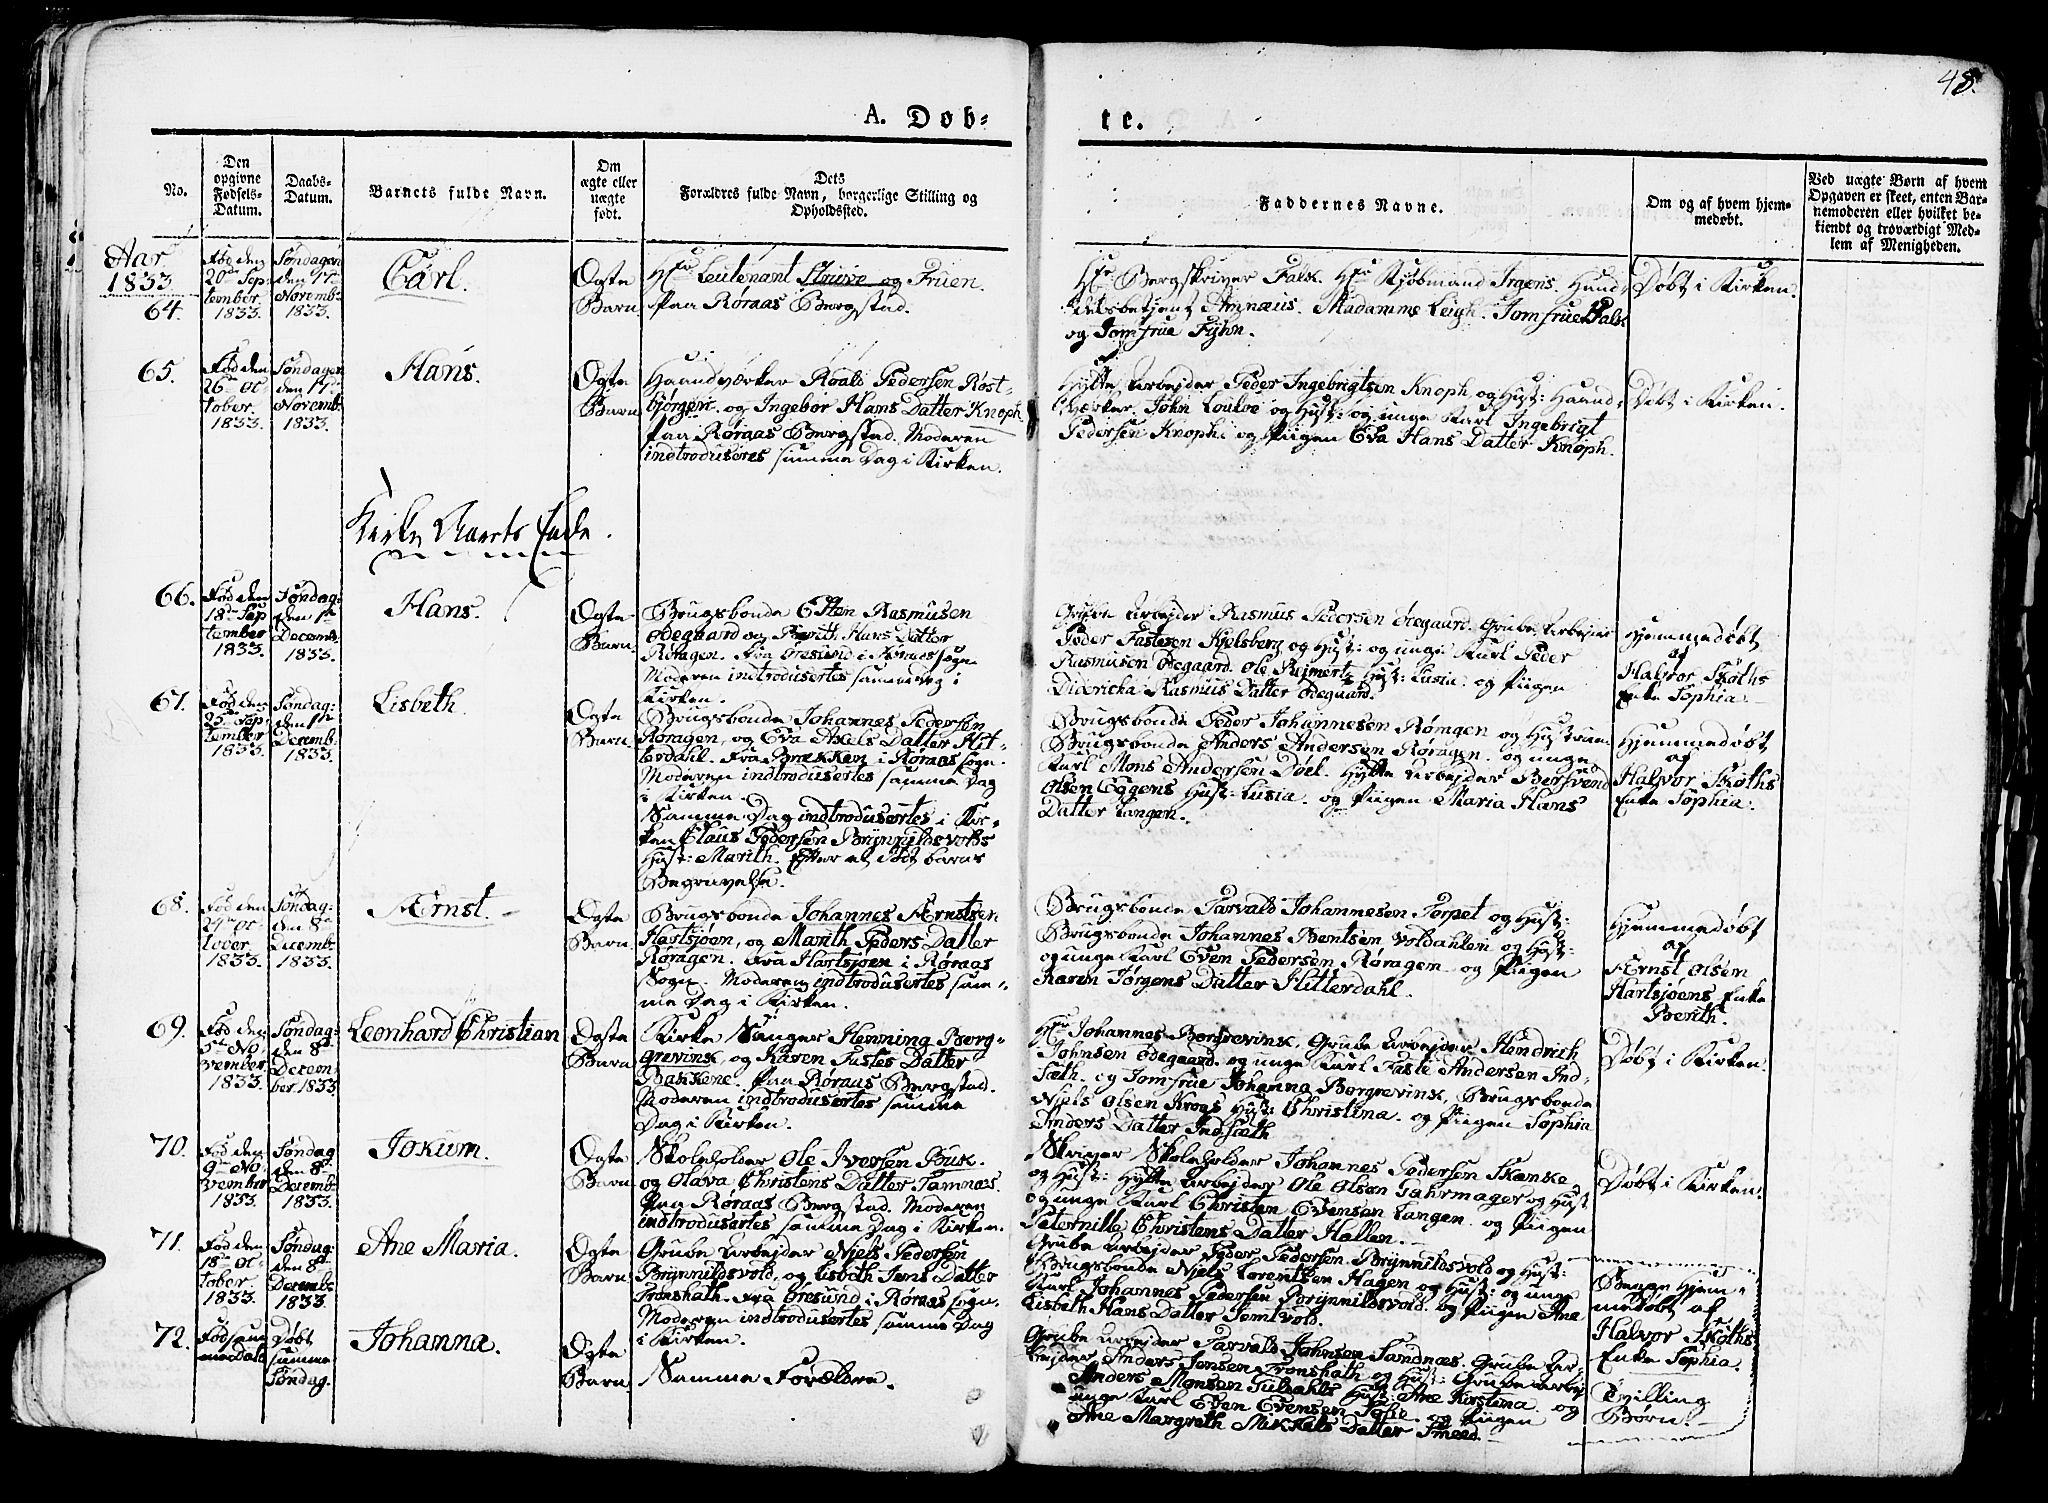 48.
A. Døb=
te.
No.
Den opgivne Fødsels-Datum.
Daabs-Datum.
Barnets fulde Navn.
Om ægte eller uægte født.
Dets
Forældres fulde Navn, borgerlige Stilling og
Opholdssted.
Faddernes Navne.
Om og af hvem hjem-
medøbt.
Ved uægte Børn af hvem
Opgaven er skeet, enten Bar-
nemoderen eller hvilket be-
kiendt og troværdigt Med-
lem af Menigheden.
Aar
1833
64.
Fød den
20de Sep-
tember
1833.
Søndagen
den 17de
Novemb:
1833.
Carl.
Ægte
Barn
Hr Leutenant Struve og Fruen.
Paa Røraas Bergstad.
Hr Bergskriver Falk. Hr Kjøbmand Irgens. Hand-
elsbetjent Amnæus. Madamme Leigh. Jomfrue Falk
og Jomfrue Fyhn.
Døbt i Kirken.
65.
Fød den
26de Oc
tober.
1833.
Søndagen
den 17de
Novemb:
1833.
Hans.
Ægte
Barn
Haandværker Roald Pedersen Røst-
bjørgen. og Ingebor Hans Datter Knoph
paa Røraas Bergstad. Moderen
indtroduseres samme Dag i Kirken.
Hytte Arbejder Peder Ingebrigtsen Knoph og Hust: Haand-
værker John Loukve og Hust: og unge Karl Ingebrigt
Pedersen Knoph: og Piigen Eva Hans Datter Knoph.
Døbt i Kirken.
Kirke Aarets Ende.
66.
Fød den
18de Sep
tember
1833.
Søndag:
den 1ste
Decemb:
1833.
Hans.
Ægte
Barn.
Brugsbonde Esten Rasmusen
Ødegaard og Berith Hans Datter
Røragen. Fra Øresund i Røraas sogn
Moderen indtrodusertes samme Dag i
Kirken.
Grube Arbejder Rasmus Pedersen Ødegaard. Grube Arbejder
Peder Fastesen Kjelsberg og Hust: og unge Karl Peder
Rasmusen Ødegaard. Ole Reimertz Hust: Lusia. og Piigen
Didericka Rasmus Datter Ødegaard.
Hjemmedøbt
af
Halvor Skoths
Enke Sophia.
67.
Fød den
25de Sep-
tember
1833.
Søndag:
den 1ste
Decemb:
1833.
Lisbeth.
Ægte
Barn.
Brugsbonde Johannes Pedersen
Røragen, og Eva Axels Datter Hit-
terdahl. Fra Brækken i Røraas sogn.
Moderen indtrodusertes samme Dag
i Kirken.
Samme Dag indtrodusertes i Kir-
ken Claus Pedersen Brynnildsvolds
Hust: Marith. Efter et Dødt barns
Begravelse.
Brugsbonde Peder Johannesen Røragen og Hustrue
Brugsbonde Anders Andersen Røragen. og unge
Karl Mons Andersen Døel. Hytte Arbejder Bersvend
Olsen Eggens Hust: Lusia. og Piigen Maria Hans
Datter Langen.
Hjemmedøbt
af
Halvor Skoths
Enke Sophia.
68.
Fød den
29de Oc-
tober
1833.
Søndag:
den 8de
Decemb:
1833.
Ærnst.
Ægte
Barn.
Brugsbonde Johannes Ærnstsen
Hartsjøen, og Marith Peders Datter
Røragen. Fra Hartsjøen i Røraas
Sogn. Moderen indtrodusertes sam-
me Dag i Kirken.
Brugsbonde Tarvald Johannesen Torpet og Hust:
Brugsbonde Johannes Bentsen Voldahlen og Hust:
og unge Karl Even Pedersen Røragen og Piigen
Karen Jørgens Datter Hitterdahl.
Hjemmedøbt
af
Ærnst Olsen
Hartsjøens Enke
Berith.
69.
Fød den
5te No-
vember
1833.
Søndag:
den 8de
Decem
ber 1833
Leonhard Christian
Ægte
Barn
Kirke Sanger Henning Borg-
grevink og Karen Fastes Datter
Bakkene. Paa Røraas Bergstad.
Moderen indtrodusertes samme
Dag i Kirken.
Hr Johannes Borgrevink. Grube Arbejder Hendrich
Johnsen Ødegaard. og unge Karl Faste Andersen Ind-
sæth. og Jomfrue Johanna Borgrevink. Brugsbonde
Niels Olsen Krogs Hust: Christina. og Piigen Sophia
Anders Datter Indsæth
Døbt i Kirken.
70.
Fød den
9de No-
vember
1833.
Søndag
den 8de
Decemb:
1833.
Jokum.
Ægte
Barn
Skoleholder Ole Iversen Buk.
og Olava Christens Datter Tamnæs.
Paa Røraas Bergstad. Moderen
indtrodusertes samme Dag i Kirken.
Skriver Skoleholder Johannes Pedersen Skanke
og Hust: Hytte Arbejder Ole Olsen Fahrmager og Hust
og unge Karl Christen Evensen Langen. og Piigen
Peternille Christens Datter Hallen.
Døbt i Kirken.
71.
Fød den
18de Oc-
tober
1833.
Søndag:
den 8de
Decemb:
1833.
Ane Maria.
Ægte
Barn.
Grube Arbejder Niels Pedersen
Brynnildsvold, og Lisbeth Jens Datter
Tronshath. Fra Øresund i Røraas sogn.
Moderen indtrodusertes samme Dag
i Kirken.
Grube Arbejder Peder Pedersen Brynnildsvold og Hust:
Brugsbonde Niels Lorentsen Hagen og Hust: og unge
Karl Johannes Pedersen Brynnildsvold. og Piigen Ane
Lisbeth Hans Datter Tomtvold.
Begge Hjem-
medøbt af
Halvor Skoths
Enke Sophia.
Tvilling
Børn.
72.
Fød sam
me Dato
Døbt
samme
Søndag.
Johanna.
Ægte
Barn.
Samme Forældre.
Grube Arbejder Tarvald Johnsen Sandnæs. Grube Ar-
bejder Anders Jensen Tronshath og Hust: Grube Arbej
Anders Monsen Fulsahls Hust: Ane Kirstina. og
unge Karl Even Evensen og Piigen
Ane Margreth Mikkels Datter Smeed.